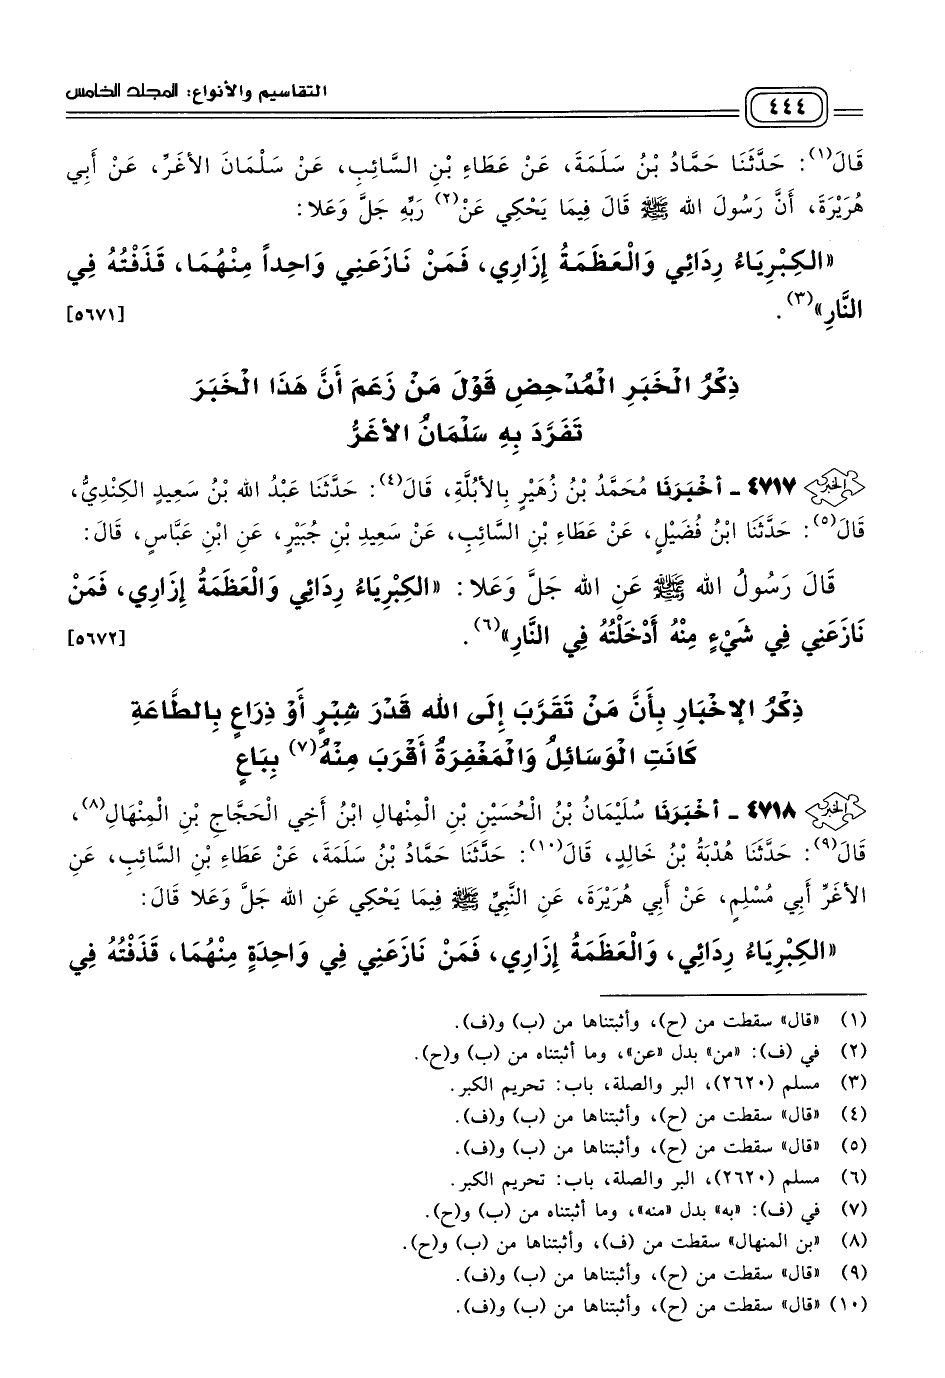 التقاسيم والأنواع: المجلد الخامس
٤٤٤
قَالَ(١): حَدَّثَنَا حَمَّادُ بْنُ سَلَمَةَ، عَنْ عَطَاءِ بْنِ السَّائِبِ، عَنْ سَلْمَانَ الأَغَرِّ، عَنْ أَبِي
هُرَيْرَةَ، أَنَّ رَسُولَ الله ﷺ قَالَ فِيمَا يَحْكِي عَنْ(٢) رَبِّهِ جَلَّ وَعَلا:
«الكِبْرِيَاءُ رِدَائِي وَالْعَظَمَةُ إِزَارِي، فَمَنْ نَازَعَنِي وَاحِداً مِنْهُمَا، قَذَفْتُهُ فِي
النَّارِ»(٣). [٥٦٧١]
ذِكْرُ الْخَبَرِ الْمُدْحِضِ قَوْلَ مَنْ زَعَمَ أَنَّ هَذَا الْخَبَرَ
تَفَرَّدَ بِهِ سَلْمَانُ الأَغَرُّ
الخبر ٤٧١٧ - أَخْبَرَنَا مُحَمَّدُ بْنُ زُهَيْرٍ بِالأُبُلَّةِ، قَالَ(٤): حَدَّثَنَا عَبْدُ الله بْنُ سَعِيدٍ الكِنْدِيُّ،
قَالَ(٥): حَدَّثَنَا ابْنُ فُضَيْلٍ، عَنْ عَطَاءِ بْنِ السَّائِبِ، عَنْ سَعِيدِ بْنِ جُبَيْرٍ، عَنِ ابْنِ عَبَّاسٍ، قَالَ:
قَالَ رَسُولُ الله ﷺ عَنِ الله جَلَّ وَعَلا: «الكِبْرِيَاءُ رِدَائِي وَالْعَظَمَةُ إِزَارِي، فَمَنْ
نَازَعَنِي فِي شَيْءٍ مِنْهُ أَدْخَلْتُهُ فِي النَّارِ»(٦). [٥٦٧٢]
ذِكْرُ الإخْبَارِ بِأَنَّ مَنْ تَقَرَّبَ إِلَى الله قَدْرَ شِبْرٍ أَوْ ذِرَاعٍ بِالطَّاعَةِ
كَانَتِ الْوَسَائِلُ وَالْمَغْفِرَةُ أَقْرَبَ مِنْهُ(٧) بِبَاعٍ
الخبر ٤٧١٨ - أَخْبَرَنَا سُلَيْمَانُ بْنُ الْحُسَيْنِ بْنِ الْمِنْهَالِ ابْنُ أَخِي الْحَجَّاجِ بْنِ الْمِنْهَالِ(٨)،
قَالَ(٩): حَدَّثَنَا هُدْبَةُ بْنُ خَالِدٍ، قَالَ(١٠): حَدَّثَنَا حَمَّادُ بْنُ سَلَمَةَ، عَنْ عَطَاءِ بْنِ السَّائِبِ، عَنِ
الأَغَرِّ أَبِي مُسْلِمٍ، عَنْ أَبِي هُرَيْرَةَ، عَنِ النَّبِيِّ ﷺ فِيمَا يَحْكِي عَنِ الله جَلَّ وَعَلا قَالَ:
«الكِبْرِيَاءُ رِدَائِي، وَالْعَظَمَةُ إِزَارِي، فَمَنْ نَازَعَنِي فِي وَاحِدَةٍ مِنْهُمَا، قَذَفْتُهُ فِي
(١) «قال» سقطت من (ح)، وأثبتناها من (ب) و(ف).
(٢) في (ف): «من» بدل «عن»، وما أثبتناه من (ب) و(ح).
(٣) مسلم (٢٦٢٠)، البر والصلة، باب: تحريم الكبر.
(٤) «قال» سقطت من (ح)، وأثبتناها من (ب) و(ف).
(٥) «قال» سقطت من (ح)، وأثبتناها من (ب) و(ف).
(٦) مسلم (٢٦٢٠)، البر والصلة، باب: تحريم الكبر.
(٧) في (ف): «به» بدل «منه»، وما أثبتناه من (ب) و(ح).
(٨) «بن المنهال» سقطت من (ف)، وأثبتناها من (ب) و(ح).
(٩) «قال» سقطت من (ح)، وأثبتناها من (ب) و(ف).
(١٠) «قال» سقطت من (ح)، وأثبتناها من (ب) و(ف).